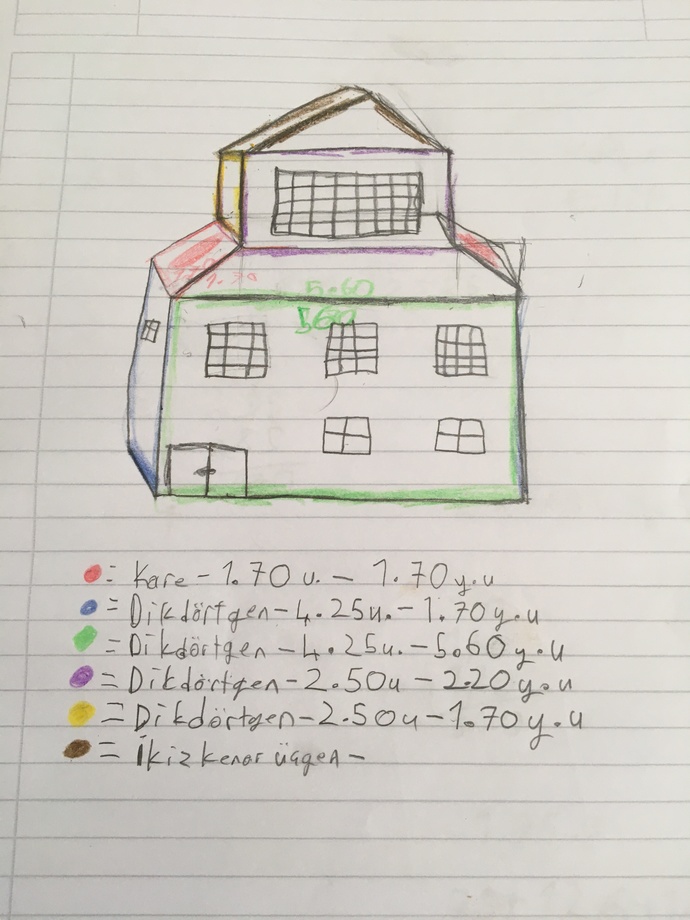 1.70
5.60
560
= Kare - 1.70 u. - 1.70 y.u
= Dikdörtgen - 4.25u. - 1.70 y.u
= Dikdörtgen - 4.25u. - 5.60 y.u
= Dikdörtgen - 2.50u - 2.20 y.u
= Dikdörtgen - 2.50u - 1.70 y.u
= İkizkenar üçgen -